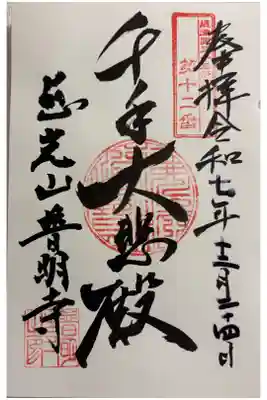 第十二番
奉拝令和七年十二月二十四日
千手大悲殿
慈光山普明寺